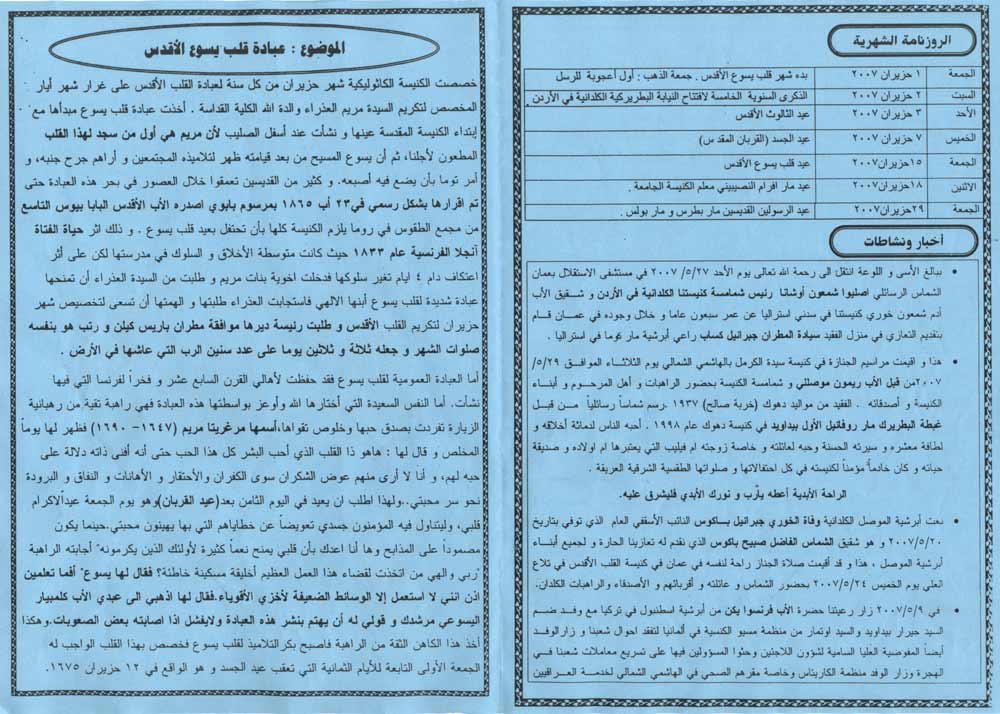 الروزنامة الشهرية
الجمعة ١ حزيران ٢٠٠٧ بدء شهر قلب يسوع الأقدس . جمعة الذهب : أول أعجوبة للرسل
السبت ٢ حزيران ٢٠٠٧ الذكرى السنوية الخامسة لافتتاح النيابة البطريركية الكلدانية في الأردن .
الأحد ٣ حزيران ٢٠٠٧ عيد الثالوث الأقدس
الخميس ٧ حزيران ٢٠٠٧ عيد الجسد (القربان المقدس)
الجمعة ١٥حزيران٢٠٠٧ عيد قلب يسوع الأقدس
الاثنين ١٨حزيران٢٠٠٧ عيد مار افرام النصيبيني معلم الكنيسة الجامعة .
الجمعة ٢٩حزيران٢٠٠٧ عيد الرسولين القديسين مار بطرس و مار بولس .
أخبار ونشاطات
• ببالغ الأسى و اللوعة انتقل الى رحمة الله تعالى يوم الأحد ٢٠٠٧ /٥/٢٧ في مستشفى الاستقلال بعمان
الشماس الرسائلي اصليوا شمعون أوشانا رئيس شمامسة كنيستنا الكلدانية في الأردن و شقيق الأب
آدم شمعون خوري كنيستنا في سدني استراليا عن عمر سبعون عاما و خلال وجوده في عمان قام
بتقديم التعازي في منزل الفقيد سيادة المطران جبرائيل كساب راعي أبرشية مار توما في استراليا .
• هذا و اقيمت مراسيم الجنازة في كنيسة سيدة الكرمل بالهاشمي الشمالي يوم الثلاثاء الموافق ٥/٢٩/
٢٠٠٧من قبل الأب ريمون موصللي و شمامسة الكنيسة بحضور الراهبات و أهل المرحوم و أبناء
الكنيسة و أصدقائه . الفقيد من مواليد دهوك (خربة صالح) ١٩٣٧ .رسم شماساً رسائلياً من قبل
غبطة البطريرك مار روفائيل الأول بيداويد في كنيسة دهوك عام ١٩٩٨ . أحبه الناس لدماثة أخلاقه و
لطافة معشره و سيرته الحسنة وحبه لعائلته و خاصة زوجته ام فيليب التي يعتبرها ام اولاده و صديقة
حياته و كان خادماً مؤمناً لكنيسته في كل احتفالاتها و صلواتها الطقسية الشرقية العريقة .
الراحة الأبدية أعطه يارب و نورك الأبدي فليشرق عليه.
• نعت أبرشية الموصل الكلدانية وفاة الخوري جبرائيل بساكوس النائب الأسقفي العام الذي توفي بتاريخ
٢٠٠٧/٥/٢٠ و هو شقيق الشماس الفاضل صبيح باكوس الذي نقدم له تعازينا الحارة و لجميع أبناء
أبرشية الموصل ، هذا و قد أقيمت صلاة الجناز راحة لنفسه في عمان في كنيسة القلب الأقدس في تلاع
العلي يوم الخميس ٢٠٠٧/٥/٢٤ بحضور الشماس و عائلته و أقربائهم و الأصدقاء والراهبات الكلدان.
• في ٢٠٠٧/٥/٩ زار رعيتنا حضرة الأب فرنسوا يكن من أبرشية اسطنبول في تركيا مع وفد ضم
السيد جيرار بيداويد و السيد اوتمار من منظمة مسيو الكنسية في ألمانيا لتفقد احوال شعبنا و زارالوفد
أيضاً المفوضية العليا السامية لشؤون اللاجئين وحثوا المسؤولين فيها على تسريع معاملات شعبنا في
الهجرة وزار الوفد منظمة الكاريتاس وخاصة مقرهم الصحي في الهاشمي الشمالي لخدمة العراقيين
الموضوع : عبادة قلب يسوع الأقدس
خصصت الكنيسة الكاثوليكية شهر حزيران من كل سنة لعبادة القلب الأقدس على غرار شهر أيار
المخصص لتكريم السيدة مريم العذراء والدة الله الكلية القداسة . أخذت عبادة قلب يسوع مبدأها مع
إبتداء الكنيسة المقدسة عينها و نشأت عند أسفل الصليب لأن مريم هي أول من سجد لهذا القلب
المطعون لأجلنا، ثم أن يسوع المسيح من بعد قيامته ظهر لتلاميذه المجتمعين و أراهم جرح جنبه، و
أمر توما بأن يضع فيه أصبعه. و كثير من القديسين تعمقوا خلال العصور في بحر هذه العبادة حتى
تم اقرارها بشكل رسمي في٢٣ آب ١٨٦٥ بمرسوم بابوي اصدره الأب الأقدس البابا بيوس التاسع
من مجمع الطقوس في روما يلزم الكنيسة كلها بأن تحتفل بعيد قلب يسوع . و ذلك اثر حياة الفتاة
آنجلا الفرنسية عام ١٨٣٣ حيث كانت متوسطة الأخلاق و السلوك في مدرستها لكن على أثر
اعتكاف دام ٤ ايام تغير سلوكها فدخلت اخوية بنات مريم و طلبت من السيدة العذراء أن تمنحها
عبادة شديدة لقلب يسوع أبنها الالهي فاستجابت العذراء طلبتها و الهمتها أن تسعى لتخصيص شهر
حزيران لتكريم القلب الأقدس و طلبت رئيسة ديرها موافقة مطران باريس كيلن و رتب هو بنفسه
صلوات الشهر و جعله ثلاثة و ثلاثين يوما على عدد سنين الرب التي عاشها في الأرض .
أما العبادة العمومية لقلب يسوع فقد حفظت لأهالي القرن السابع عشر و فخراً لفرنسا التي فيها
نشأت. أما النفس السعيدة التي أختارها الله وأوعز بواسطتها هذه العبادة فهي راهبة تقية من رهبانية
الزيارة تفردت بصدق حبها وخلوص تقواها،أسمها مرغريتا مريم (١٦٤٧- ١٦٩٠) فظهر لها يوماً
المخلص و قال لها : هاهو ذا القلب الذي أحب البشر كل هذا الحب حتى أنه أفنى ذاته دلالة على
حبه لهم، و أنا لا أرى منهم عوض الشكران سوى الكفران والأحتقار و الأهانات و النفاق و البرودة
نحو سر محبتي..ولهذا اطلب ان يعيد في اليوم الثامن بعد(عيد القربان)وهو يوم الجمعة عيدالاكرام
قلبي، وليتناول فيه المؤمنون جسدي تعويضاً عن خطاياهم التي بها يهينون محبتي.حينما يكون
مصموداً على المذابح وها أنا اعدك بأن قلبي يمنح نعماً كثيرة لأولئك الذين يكرمونه" أجابته الراهبة
"ربي والهي من اتخذت لقضاء هذا العمل العظيم أخليقة مسكينة خاطئة؟ فقال لها يسوع" أفما تعلمين
اذن انني لا استعمل إلا الوسائط الضعيفة لأخزي الأقوياء.فقال لها اذهبي الى عبدي الأب كلمبيار
اليسوعي مرشدك و قولي له أن يهتم بنشر هذه العبادة ولايفشل اذا اصابته بعض الصعوبات.وهكذا
أخذ هذا الكاهن الثقة من الراهبة فاصبح بكر التلاميذ لقلب يسوع فخصص بهذا القلب الواجب له
الجمعة الأولى التابعة للأيام الثمانية التي تعقب عيد الجسد و هو الواقع في ١٢ حزيران ١٦٧٥.